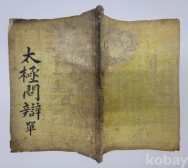 太極問辯 單
kobay